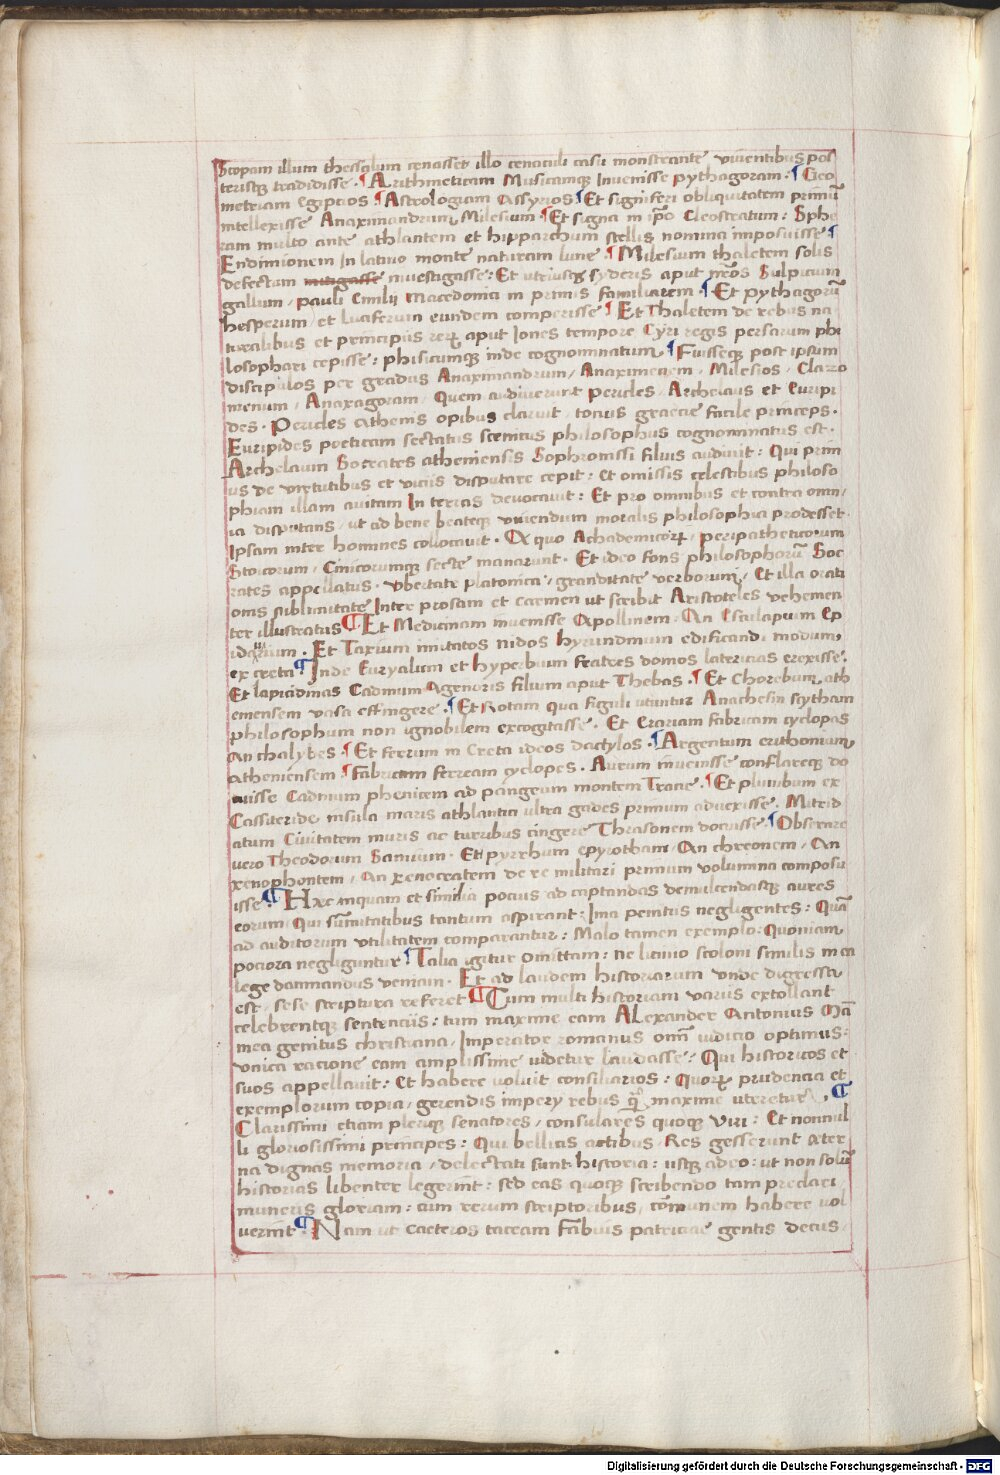 Scopam illum thessalum cenasset illo cenaculi casu monstrante viventibus pos
terisq tradidisse . ¶ Arithmeticam Musicamq Invenisse pythagoram . ¶ Geo
metriam Egiptios ¶ Astrologiam Assyrios ¶ Et signiferi obliquitatem primū
intellexisse Anaximandrum Milesium ¶ Et signa in ip̄o Cleostratum : Sphe
ram multo ante athlantem et hipparchum stellis nomina imposuisse ¶
Endimionem In latmo monte naturam lune . ¶ Milesium thaletem solis
defectum investigasse : Et utriusq syderis aput nr̄os Sulpicium
gallum / pauli Emilij Macedonia in primis familiarem . ¶ Et pythagorū
hesperum / et luciferum eundem comperisse ¶ Et Thaletem de rebus na
turalibus et principiis rerꝝ aput Iones tempore Cyri regis persarum phi
losophari cepisse : phisicumq inde cognominatum . ¶ Fuisseq post ipsum
discipulos per gradus Anaximandrum / Anaximenem / Milesios / Clazo
menium / Anaxagoram / Quem audiverunt pericles / Archelaus et Euripi
des . Pericles athenis opibus claruit / tocius graecie facile princeps .
Euripides poeticam sectatus scenicus philosophus cognominatus est .
Archelaum Socrates atheniensis Sophronissi filius audivit : Qui prim
us de virtutibus et viciis disputare cepit : et omissis celestibus philoso
phiam illam avitam In terras devocavit : Et pro omnibus et contra omn/
ia disputans / ut ad bene beateq vivendum moralis philosophia prodesset
Ipsam inter homines collocavit . Ex quo Achademicorꝝ / peripatheticorum
Stoicorum / Cinicorumq secte manarunt . Et ideo fons philosophorū Soc
rates appellatus . Ubertate platonica / granditate verborum / Et illa orati
onis sublimitate Inter prosam et carmen ut scribit Aristoteles vehemen
ter illustratus ¶ Et Medicinam invenisse Apollinem / An Esculapium Ep
Et Taxium imitatos nidos hyrundinum edificandi modum
ex creta ¶ Inde Euryalum et hyperbium fratres domos latericias erexisse .
Et lapicidinas Cadmum Agenoris filium aput Thebas . ¶ Et Chorebum ath
eniensem vasa effingere . ¶ Et Rotam qua figuli utuntur Anachesin scytham
philosophum non ignobilem excogitasse . Et Erariam fabricam cyclopas
An chalybes ¶ Et ferrum in Creta ideos dactylos . ¶ Argentum erithonium
atheniensem ¶ Fabricam ferream cyclopes . Aurum invenisse conflareq do
cuisse Cadmum phenicem ad pangeum montem Tracie . ¶ Et plumbum ex
Cassiteride insula maris athlantici ultra gades primum advexisse . Mitrid
atum Civitatem muris ac turribus cingere Thrasonem docuisse . ¶ Obserare
vero Theodorum Samium . Et pyrrhum epyrotham / An chreonem / An
xenophontem / An xenocratem de re militari primum volumina composu
isse . ¶ Hæc inquam et similia pocius ad captandas demulcendasq aures
eorum / Qui sum̄itatibus tantum aspirant : Ima penitus negligentes : Quā
ad auditorum utilitatem comparantur : Malo tamen exemplo : Quoniam
pociora negliguntur ¶ Talia igitur omittam : ne licinio stoloni similis mea
lege damnandus veniam . Et ad laudem historiarum unde digressa
est / sese scriptura referet ¶ Cum multi historiam variis extollant
celebrentq sentenciis : tum maxime eam Alexander Antonius Mā
mea genitus christiana / Imperator romanus om̄i iudicio optimus :
unica racione eam amplissime videtur laudasse : Qui historicos et
suos appellavit : Et habere voluit consiliarios : Quorꝝ prudencia et
exemplorum copia / gerendis impery rebus maxime uteretur . ¶
Clarissimi etiam pleriq senatores / consulares quoq viri : Et nonnul
li gloriosissimi principes : Qui bellicis actibus / Res gesserunt æter
na dignas memoria / delectati sunt historia : usq adeo : ut non solū
historias libenter legerint : sed eas quoq scribendo tam preclari
muneris gloriam : cum rerum scriptoribus / com̄unem habere vol
uerint ¶ Nam ut caeteros taceam Fabius patriciae gentis decus /
Digitalisierung gefördert durch die Deutsche Forschungsgemeinschaft - DFG